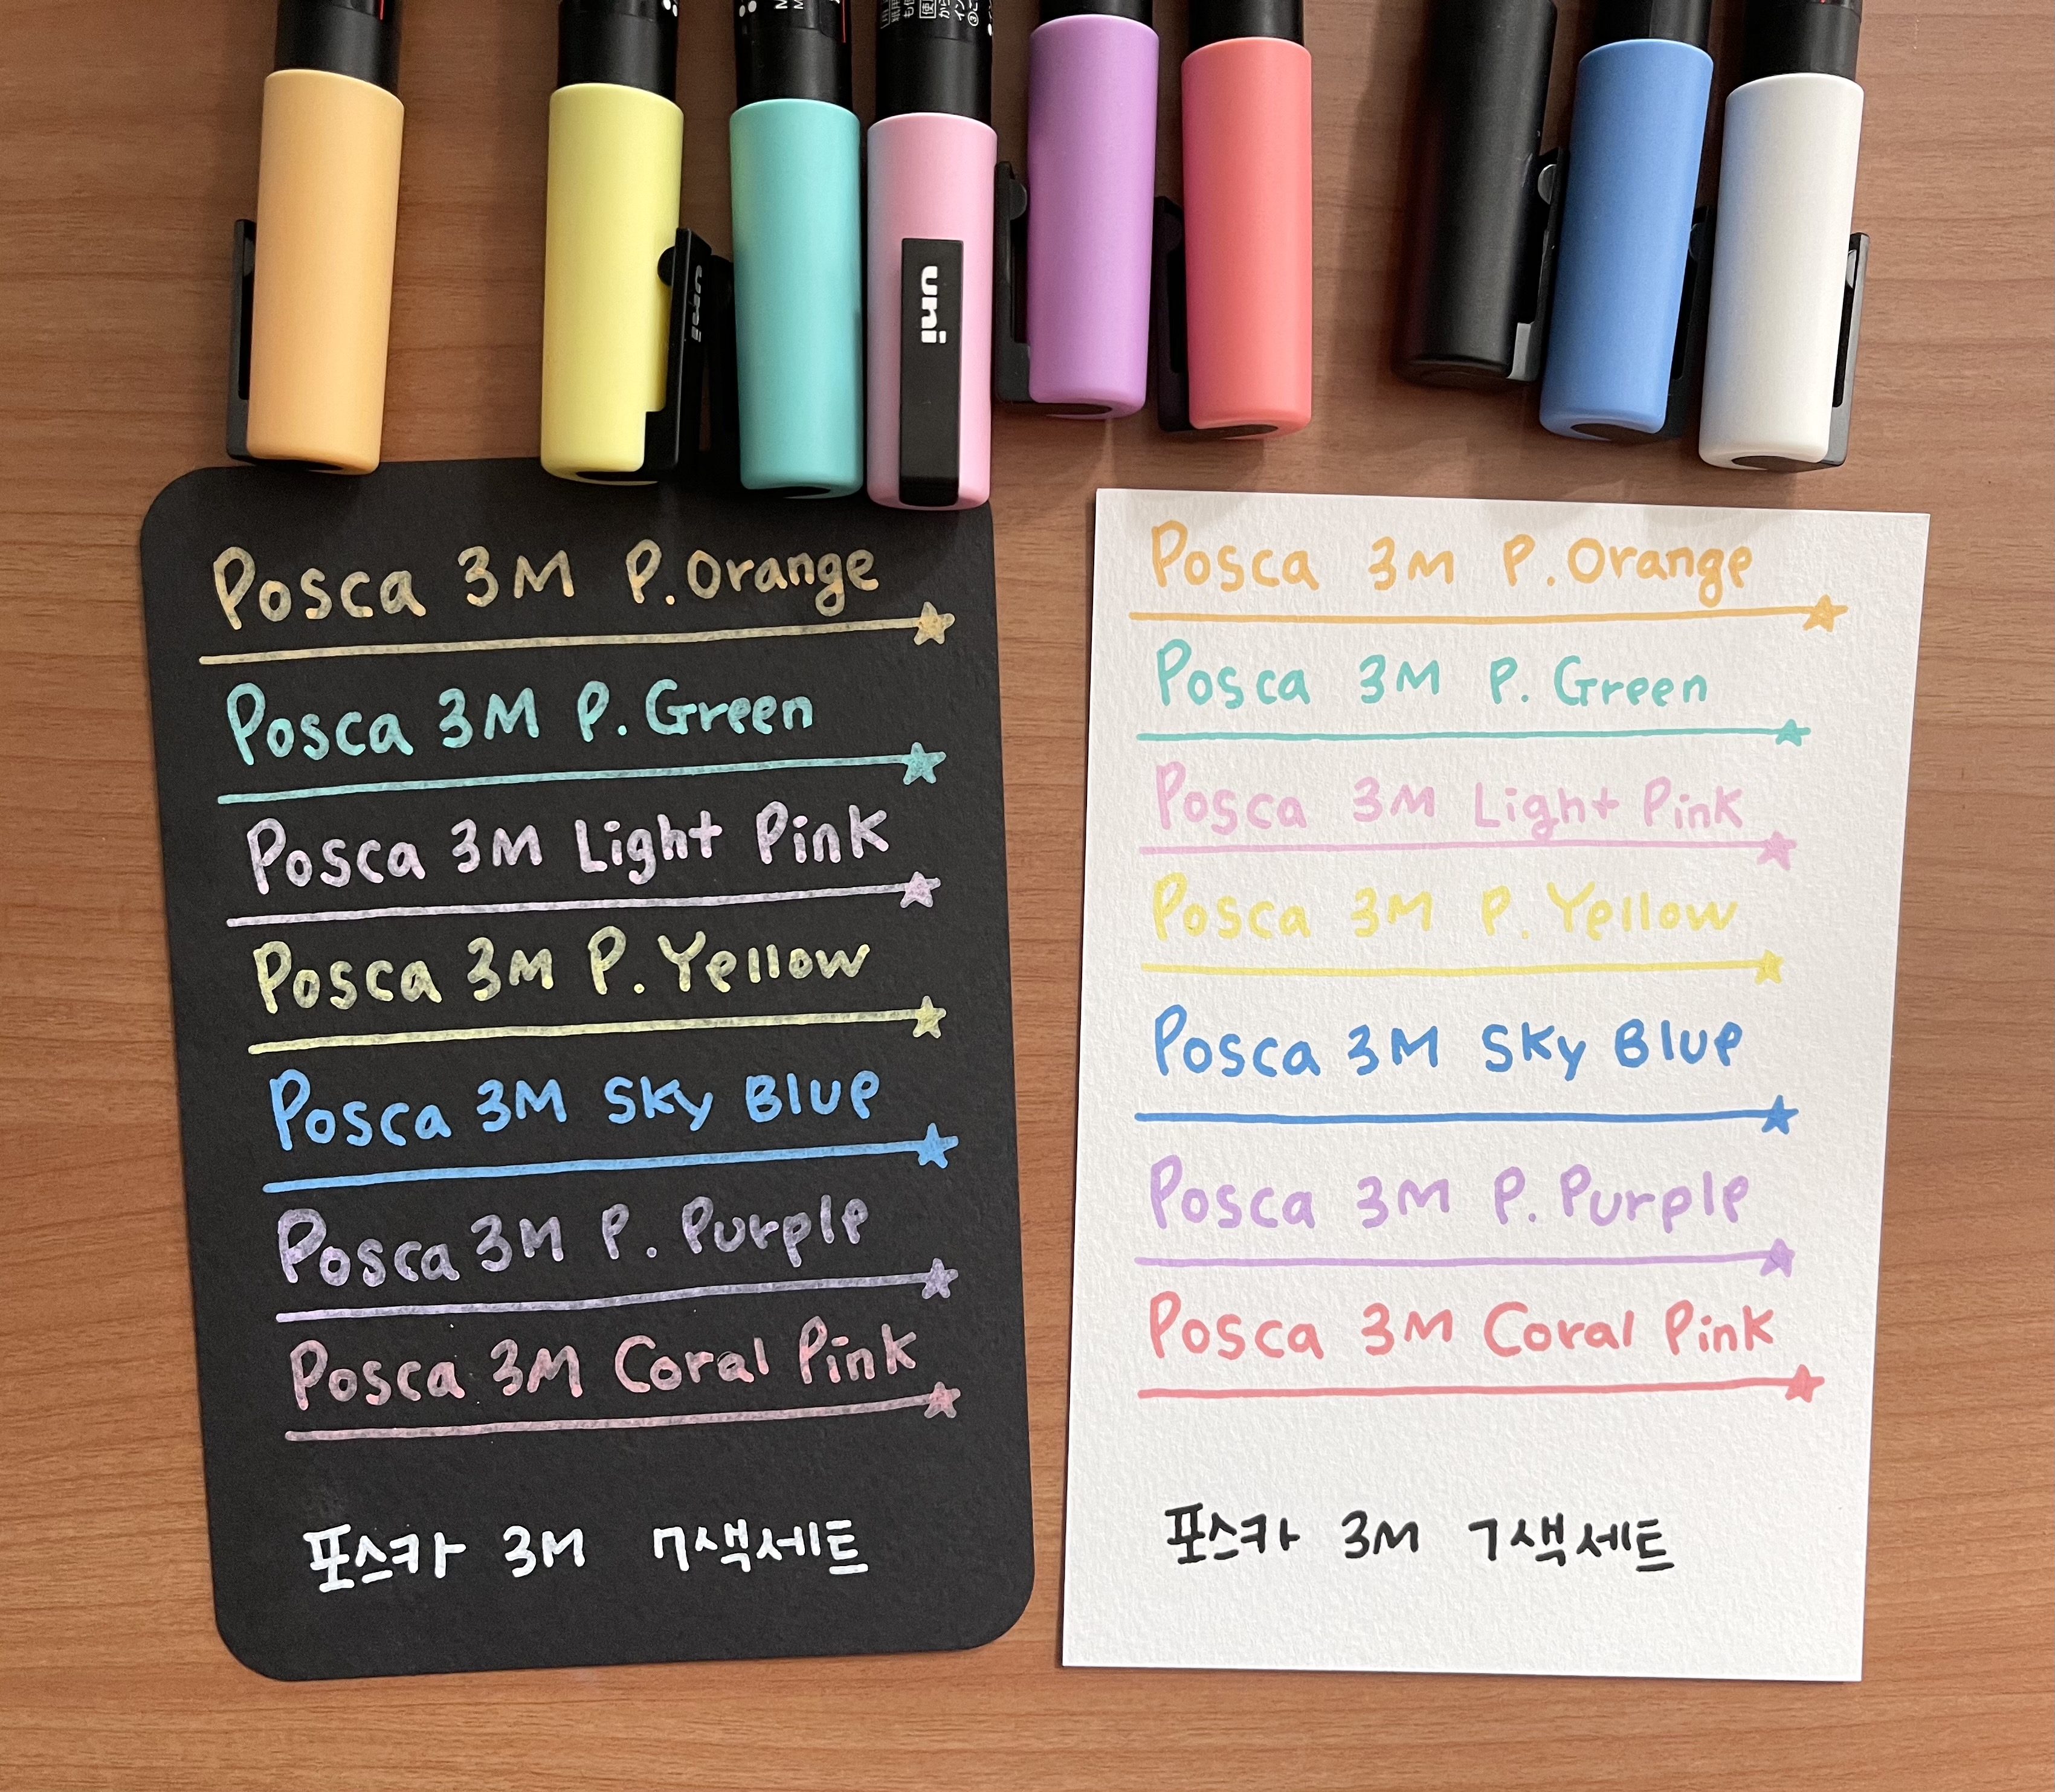 uni
uni
Posca 3M P. Orange
Posca 3M P. Green
Posca 3M Light Pink
Posca 3M P. Yellow
Posca 3M Sky Blue
Posca 3M P. Purple
Posca 3M Coral Pink
포스카 3M 7색세트
Posca 3M P. Orange
Posca 3M P. Green
Posca 3M Light Pink
Posca 3M P. Yellow
Posca 3M Sky Blue
Posca 3M P. Purple
Posca 3M Coral Pink
포스카 3M 7색세트